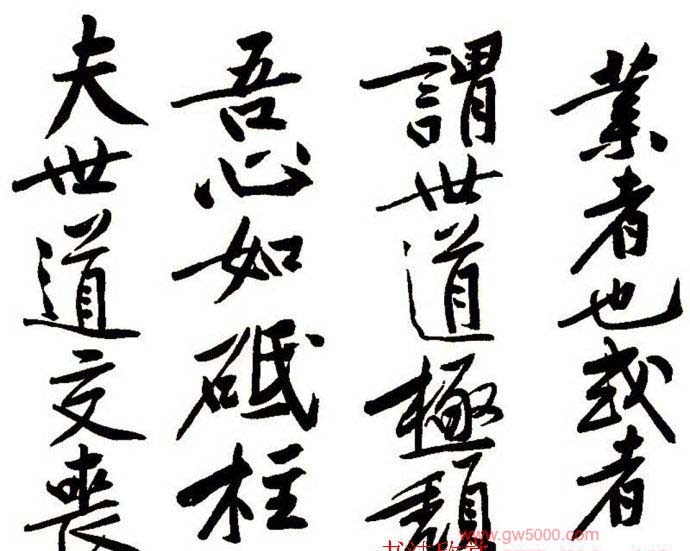 業者也或者
謂世道極頹
吾心如砥柱
夫世道交喪
www.gw5000.com
书法欣赏